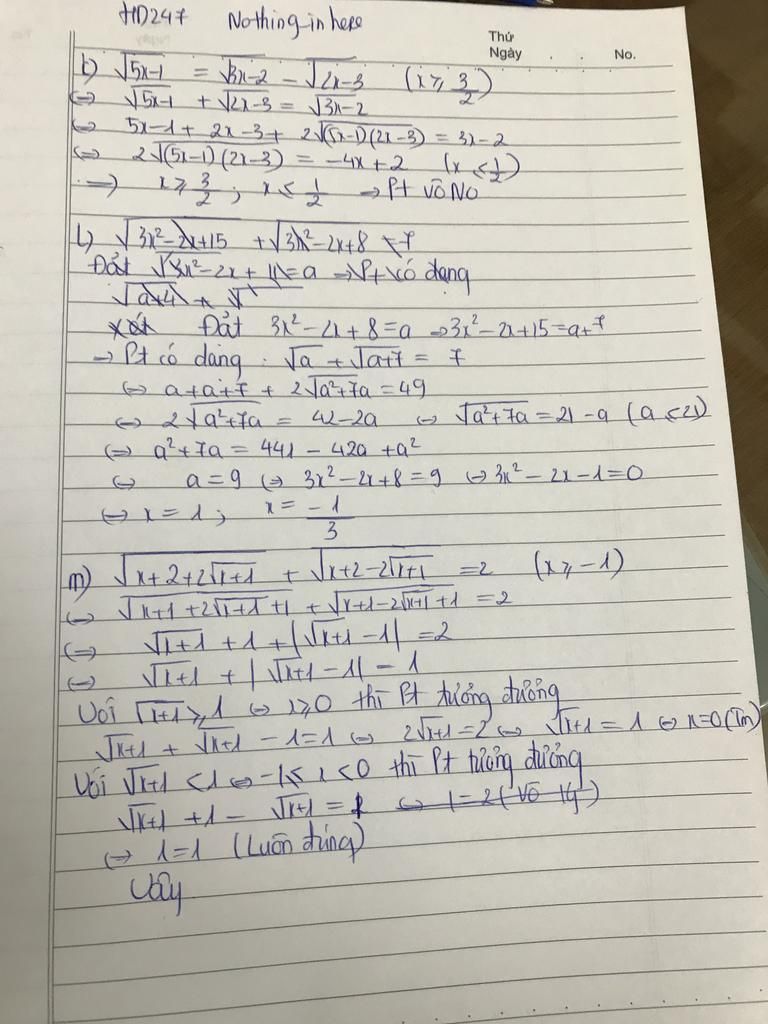 HD247 Nothing in here
Thứ
Ngày . . No.
b) √(5x-1) = √(3x-2) - √(2x-3) (x ≥ 3/2)
⇔ √(5x-1) + √(2x-3) = √(3x-2)
⇔ 5x-1 + 2x-3 + 2√((5x-1)(2x-3)) = 3x-2
⇔ 2√((5x-1)(2x-3)) = -4x+2 (x ≤ 1/2)
⇒ x ≥ 3/2 ; x ≤ 1/2 → Pt vô No
l) √(3x²-2x+15) + √(3x²-2x+8) = 7
Đặt √(3x²-2x+11) = a → Pt có dạng
√(a+4) + √
Xét Đặt 3x²-2x+8=a ⇒ 3x²-2x+15=a+7
→ Pt có dạng . √a + √(a+7) = 7
⇔ a+a+7 + 2√(a²+7a) = 49
⇔ 2√(a²+7a) = 42-2a ⇔ √(a²+7a) = 21-a (a ≤ 21)
⇔ a²+7a = 441 - 42a + a²
⇔ a=9 ⇔ 3x²-2x+8=9 ⇔ 3x²-2x-1=0
⇔ x=1 ; x = -1/3
m) √(x+2+2√(x+1)) + √(x+2-2√(x+1)) = 2 (x ≥ -1)
⇔ √(x+1+2√(x+1)+1) + √(x+1-2√(x+1)+1) = 2
⇔ √(x+1) + 1 + |√(x+1) - 1| = 2
⇔ √(x+1) + |√(x+1) - 1| - 1
Với √(x+1) ≥ 1 ⇔ x≥0 thì Pt tương đương
√(x+1) + √(x+1) - 1 = 1 ⇔ 2√(x+1) = 2 ⇔ √(x+1) = 1 ⇔ x=0 (Tm)
Với √(x+1) < 1 ⇔ -1 ≤ x < 0 thì Pt tương đương
√(x+1) + 1 - √(x+1) = 1 ⇔ 1=2 (vô lý)
⇔ 1=1 (Luôn đúng)
Vậy